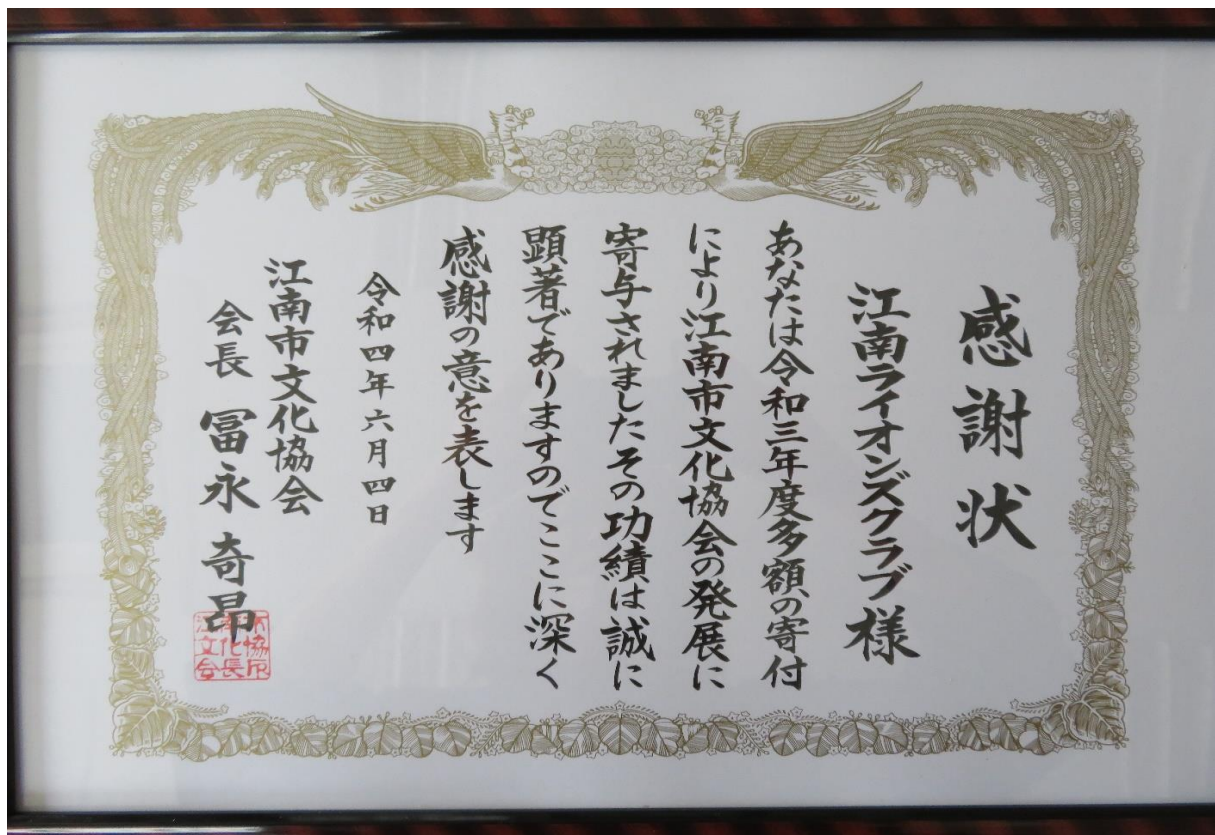 感謝状
江南ライオンズクラブ様
あなたは令和三年度多額の寄付
により江南市文化協会の発展に
寄与されましたその功績は誠に
顕著でありますのでここに深く
感謝の意を表します
令和四年六月四日
江南市文化協会
会長 冨永奇昂